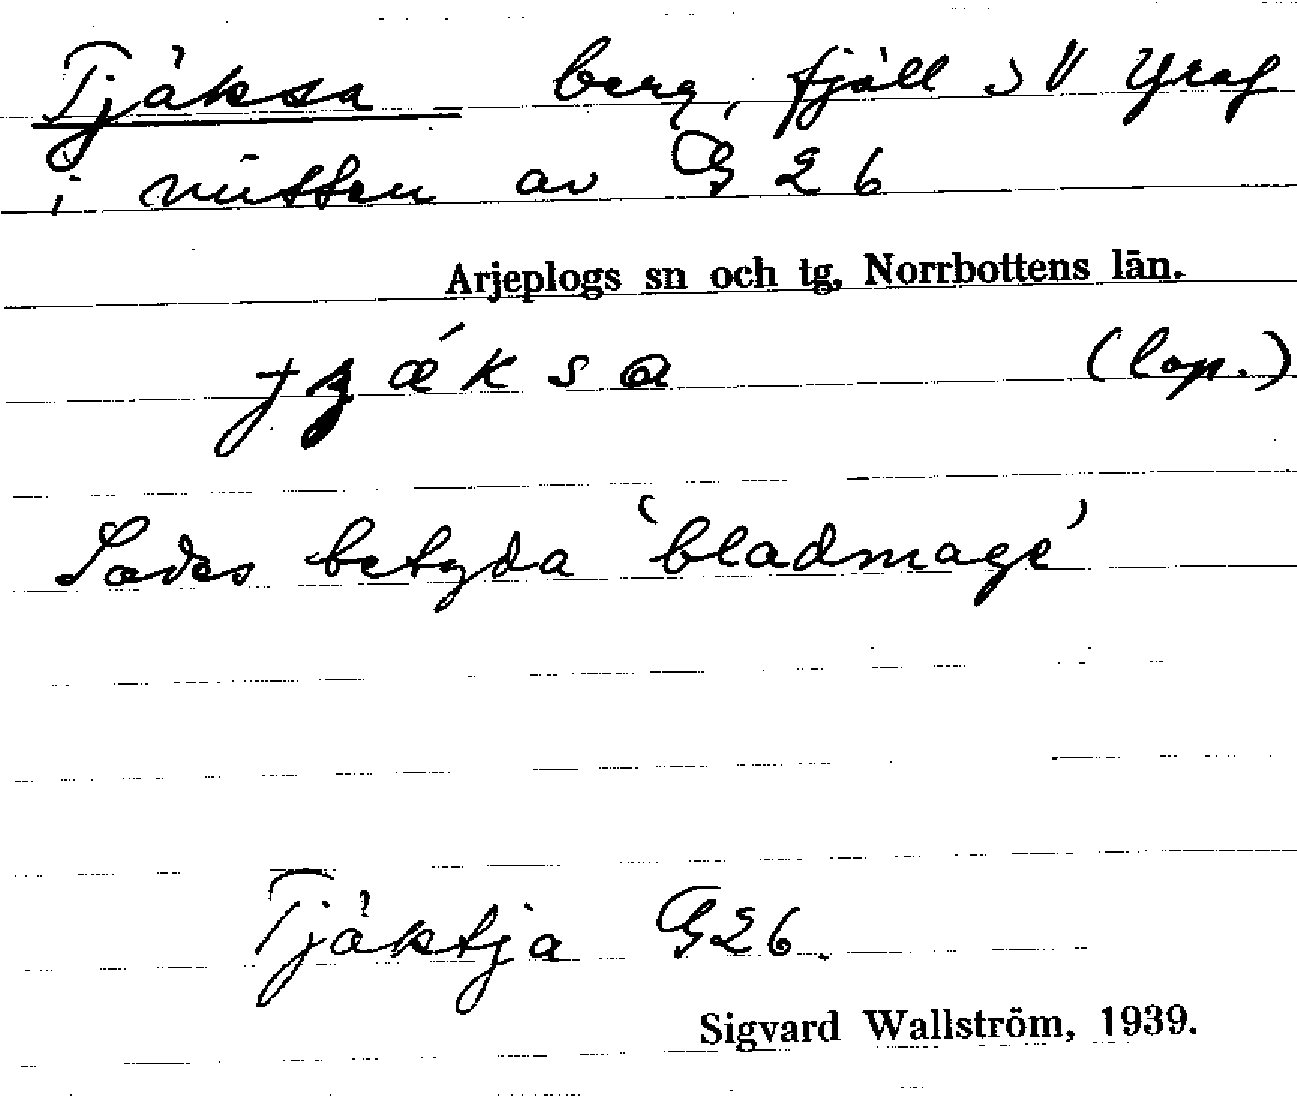 Tjäksa berg, fjäll SV Yraf
i mitten av G 26
Arjeplogs sn och tg, Norrbottens län.
tjǽksa (lap.)
Sades betyda 'bladmage'
Tjäktja G26.
Sigvard Wallström, 1939.